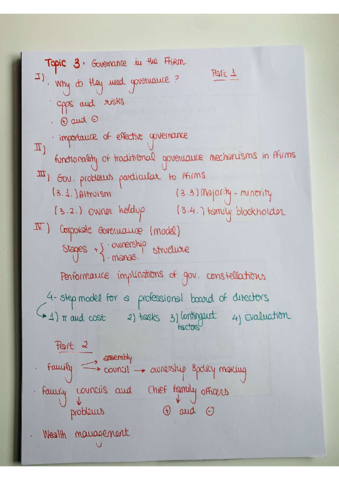 Topic 3. Governance in the FFirm
Part 1
I) · Why do they need governance?
· opps and risks
· ⊕ and ⊖
· importance of effective governance
II)
functionality of traditional governance mechanisms in FFirms
III) Gov. problems particular to FFirms
(3.1.) Altruism (3.3) Majority - minority
(3.2.) owner holdup (3.4.) family blockholder
IV) Corporate Governance (model)
Stages + { · ownership structure
· manag.
Performance implications of gov. constellations
4-step model for a professional board of directors
↳ 1) π and cost 2) tasks 3) Contingent factors 4) Evaluation
Part 2
· family → assembly
→ council → ownership & policy making
· Family councils and Chief family officers
↓ ↓
problems ⊕ and ⊖
· Wealth management